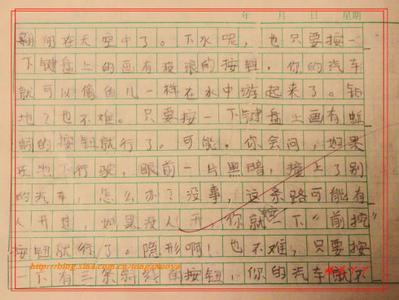 年 月 日 星期
翱翔在天空中了。下水呢,也只要按一
下键盘上的画有波浪的按钮,你的汽车
就可以像鱼儿一样在水中游起来了。钻
地?也不难。只要按一下键盘上画有
的按钮就行了。可能,你会问,如果
在地下行驶,眼前一片黑暗,撞上了别
的汽车,怎么办?没事,这条路可能有
人开过,如果没人开,你就按一下“前挖”
按钮就行了。隐形啊!也不难,只要按
一下有三条斜线的按钮,你的汽车就不